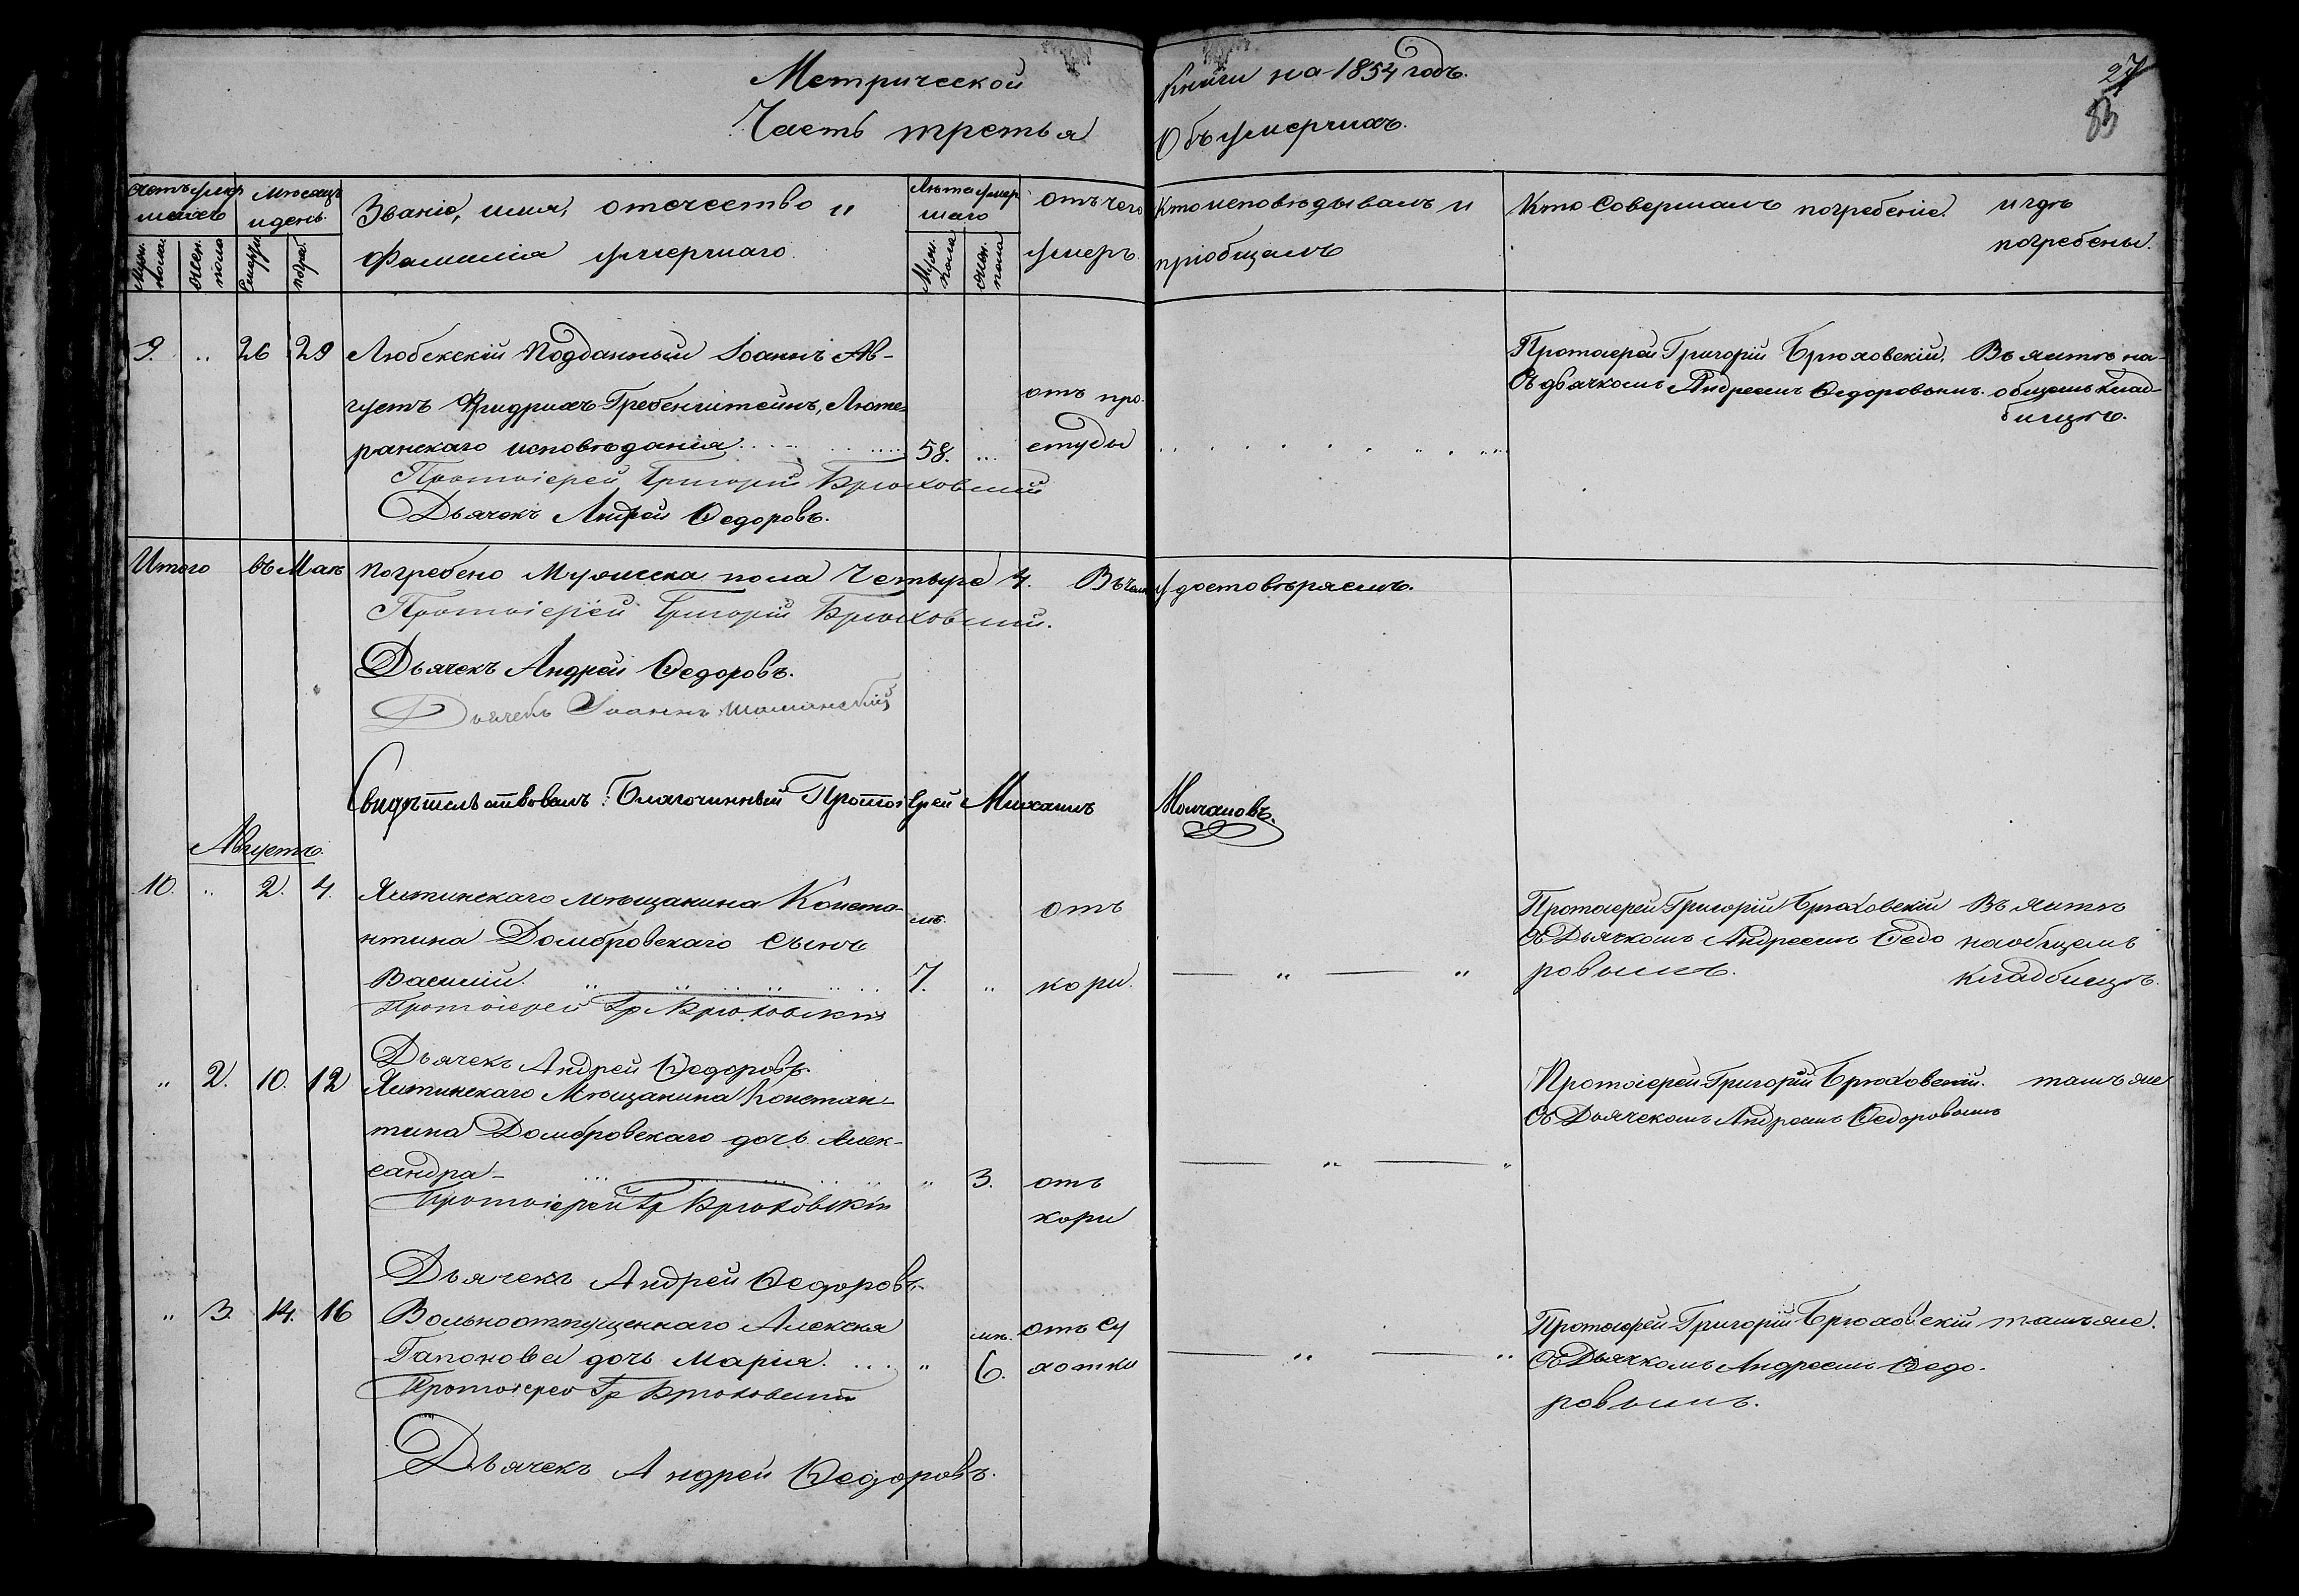 Метрической книги на 1854 годъ.
Часть третья Объ умерших.
27
83
Счетъ умер
шихъ
Мѣсяцъ
и день.
Званіе, имя, отечество и
фамилія умершаго.
Лѣта умер
шаго
отъ чего
умеръ.
Кто исповѣдывалъ и
пріобщалъ
Кто совершалъ погребеніе.
и гдѣ
погребены.
Муж.
пола.
Жен.
пола
Смерти
погреб.
Муж.
пола
Жен.
пола
9. " 26 29 Любекскій подданный Іоаннъ Ав-
густъ Фридрихъ Гребенштейнъ, Люте-
ранскаго исповѣданія 58. ...
отъ про-
студы
Протоіерей Григорій Брюховскій.
Съ дьячкомъ Андреемъ Ѳедоровымъ.
Въ Ялтѣ на
общемъ клад-
бищѣ.
Протоіерей Григорій Брюховскій
Дьячекъ Андрей Ѳедоровъ.
Итого въ Маѣ погребено Мужеска пола Четыре 4. Въ чемъ удостовѣряемъ.
Протоіерей Григорій Брюховскій.
Дьячекъ Андрей Ѳедоровъ.
Дьячекъ Іоаннъ
Свидѣтельствовалъ: Благочинный Протоіерей Михаилъ Молчановъ.
Августъ.
10. " 2. 4. Ялтинскаго мѣщанина Конста-
нтина Домбровскаго сынъ
Василій. 7. "
отъ
кори.
Протоіерей Григорій Брюховскій
Съ Дьячкомъ Андреемъ Ѳедо
ровымъ.
Въ Ялтѣ
на общемъ
кладбищѣ.
Протоіерей Гр Брюховскій
Дьячекъ Андрей Ѳедоровъ.
" 2. 10. 12 Ялтинскаго Мѣщанина Констан-
тина Домбровскаго дочь Алек-
сандра " 3. отъ
кори
Протоіерей Григорій Брюховскій. тамъ же
Съ Дьячекомъ Андреемъ Ѳедоровымъ
Протоіерей Гр Брюховскій
Дьячекъ Андрей Ѳедоровъ.
" 3. 14. 16 Вольноотпущеннаго Алексѣя
Гапонова дочь Марія. " 6.
отъ су
хотки
Протоіерей Григорій Брюховскій тамъ же.
Съ Дьячкомъ Андреемъ Ѳедо-
ровымъ.
Протоіерей Гр Брюховскій
Дьячекъ Андрей Ѳедоровъ.